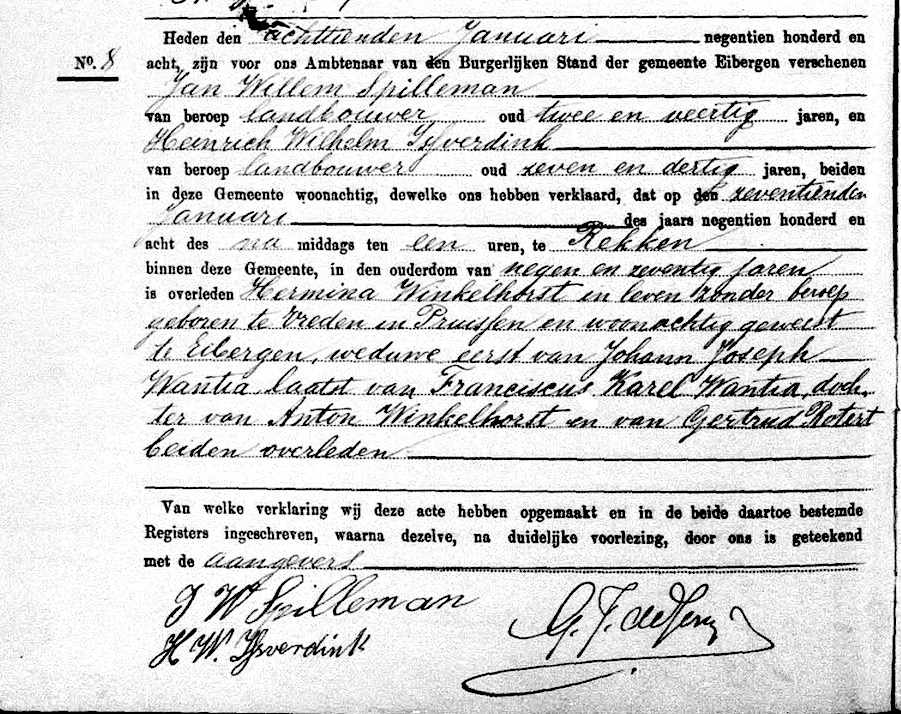 Heden den achttienden Januari negentien honderd en
No. 8
acht, zijn voor ons Ambtenaar van den Burgerlijken Stand der gemeente Eibergen verschenen
Jan Willem Spilleman
van beroep landbouwer oud twee en veertig jaren, en
Heinrich Wilhelm IJsverdink
van beroep landbouwer oud zeven en dertig jaren, beiden
in deze Gemeente woonachtig, dewelke ons hebben verklaard, dat op den zeventienden
Januari des jaars negentien honderd en
acht des na middags ten een uren, te Rekken
binnen deze Gemeente, in den ouderdom van negen en zeventig jaren
is overleden Hermina Winkelhorst in leven zonder beroep
geboren te Vreden in Pruissen en woonachtig geweest
te Eibergen, weduwe eerst van Johann Joseph
Wantia, laatst van Franciscus Karel Wantia, doch-
ter van Anton Winkelhorst en van Gertrud Rotert
beiden overleden
Van welke verklaring wij deze acte hebben opgemaakt en in de beide daartoe bestemde
Registers ingeschreven, waarna dezelve, na duidelijke voorlezing, door ons is geteekend
met de aangevers
J W Spilleman
H W. IJsverdink
G. J. de